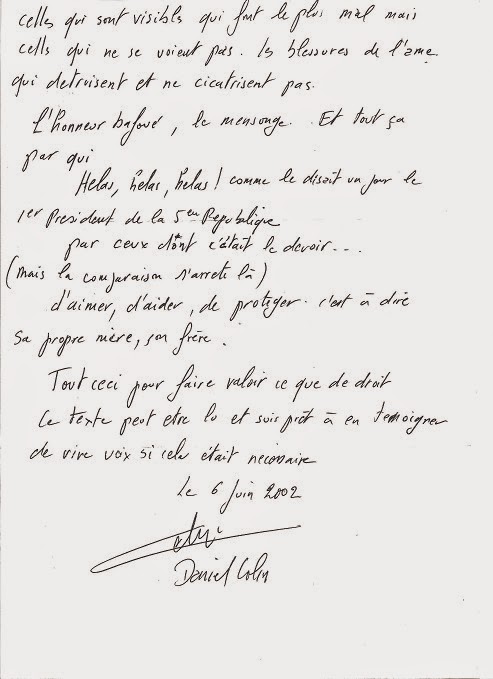 celles qui sont visibles qui font le plus mal mais
cells qui ne se voient pas. les blessures de l'ame
qui detruisent et ne cicatrisent pas.
L'honneur bafoué, le mensonge. Et tout ça
par qui
Helas, helas, helas! comme le disait un jour le
1er President de la 5em Republique
par ceux dont c'était le devoir...
(mais la comparaison s'arrete là)
d'aimer, d'aider, de proteger. c'est à dire
sa propre mère, son frère.
Tout ceci pour faire valoir ce que de droit
Ce texte peut etre lu et suis prêt à en temoigner
de vive voix si cela était necessaire
Le 6 Juin 2002
Daniel Colin